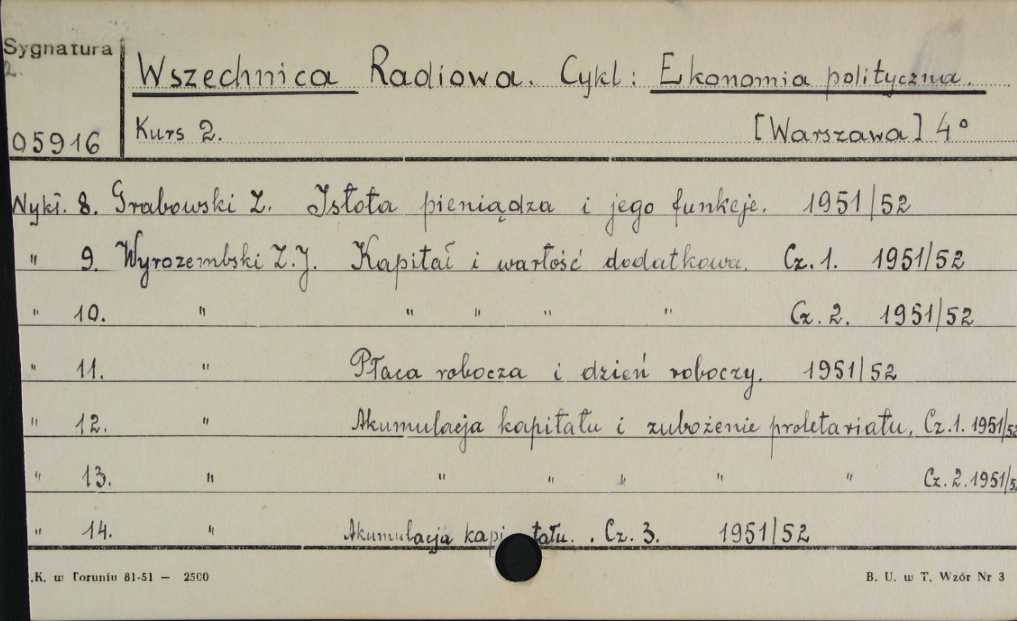 Sygnatura
2.
Wszechnica Radiowa. Cykl: Ekonomia polityczna.
05916
Kurs 2. [Warszawa] 4°
Wykł. 8. Grabowski Z. Istota pieniądza i jego funkcje. 1951/52
" 9. Wyrozembski Z.J. Kapitał i wartość dodatkowa. Cz. 1. 1951/52
" 10. " " " " " Cz. 2. 1951/52
" 11. " Płaca robocza i dzień roboczy. 1951/52
" 12. " Akumulacja kapitału i zubożenie proletariatu, Cz. 1. 1951/52
" 13. " " " " " " Cz. 2. 1951/5
" 14. " Akumulacja kapitału. . Cz. 3. 1951/52
.K. w Toruniu 81-51 — 2500
B. U. w T. Wzór Nr 3